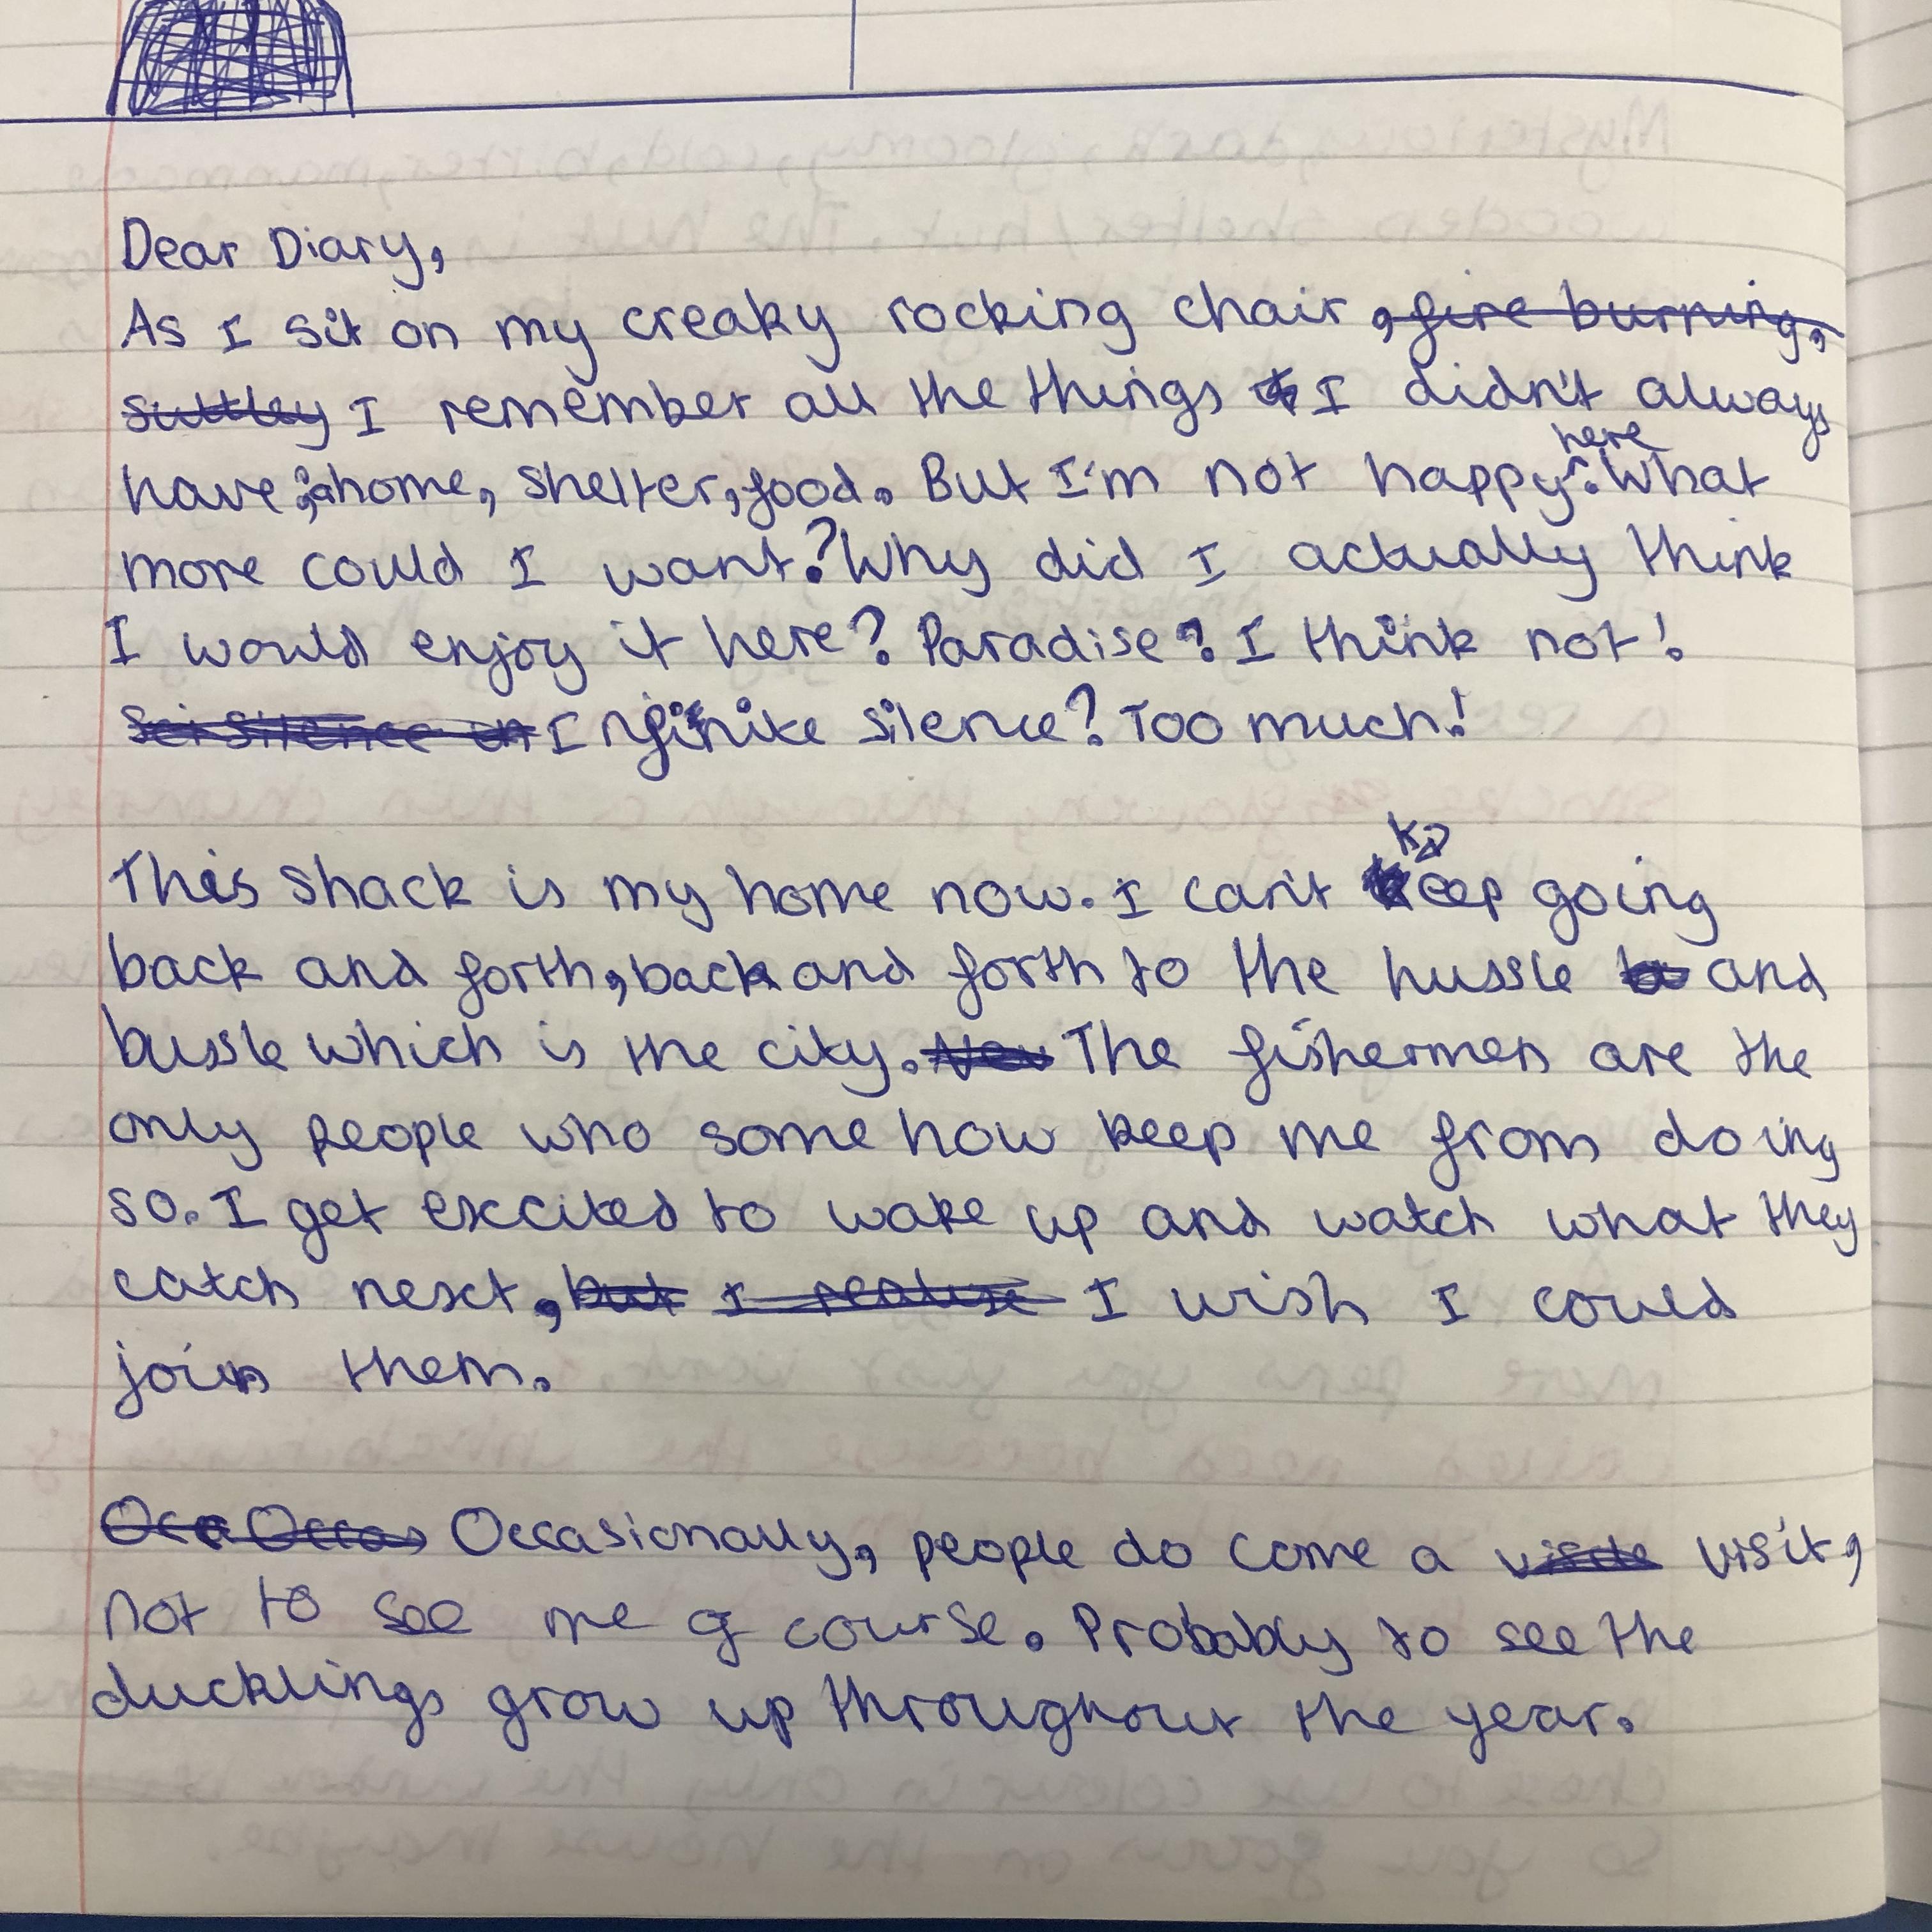 Dear Diary,
As I sit on my creaky rocking chair, fire burning,
suttley I remember all the things I didn't always
here
have; a home, shelter, food. But I'm not happy. What
more could I want? Why did I actually think
I would enjoy it here? Paradise? I think not!
silence I silence? Too much!
K
This shack is my home now. I can't keep going
back and forth, back and forth to the hussle and
bussle which is the city. The fishermen are the
only people who somehow keep me from doing
so. I get excited to wake up and watch what they
catch next, but I realise I wish I could
join them.
Occasionally, people do come a visit,
not to see me of course. Probably to see the
ducklings grow up throughout the year.